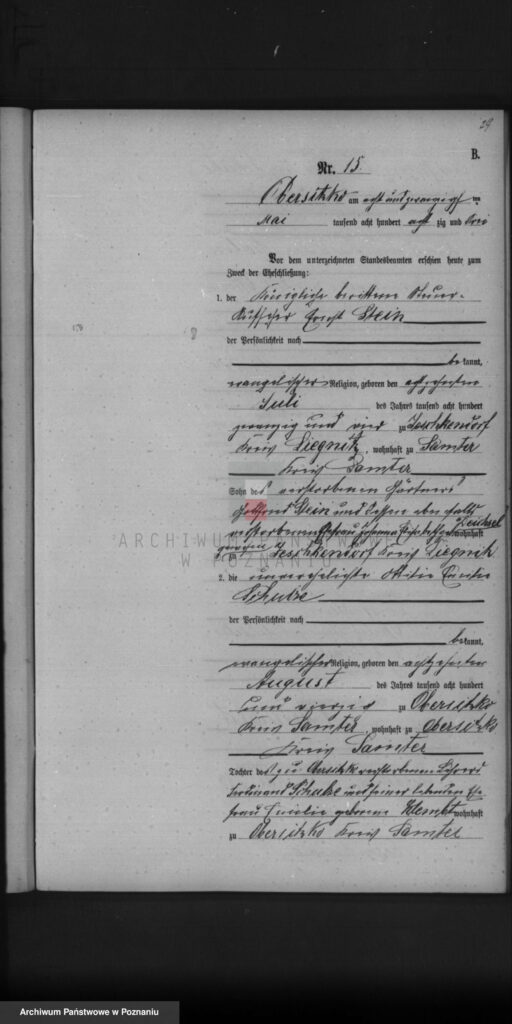 29
B.
Nr. 15.
Obersitzko am acht und zwanzigsten
Mai tausend acht hundert acht zig und drei
Vor dem unterzeichneten Standesbeamten erschien heute zum
Zweck der Eheschließung:
1. der Königliche berittene Steuer-
Aufseher Ernst Stein
der Persönlichkeit nach
bekannt,
evangelischer Religion, geboren den achtzehnten
Juli des Jahres tausend acht hundert
zwanzig und vier zu Jeschkendorf
Kreis Liegnitz, wohnhaft zu Samter
Kreis Samter
Sohn des verstorbenen Gärtners
Stein und dessen ebenfalls
verstorbenen Ehefrau Johanna geb. Leichsel wohnhaft
gewesen zu Jeschkendorf Kreis Liegnitz
2. die unverehelichte Emilie
Schulze
der Persönlichkeit nach
bekannt,
evangelischer Religion, geboren den achtzehnten
August des Jahres tausend acht hundert
und vierzig zu Obersitzko
Kreis Samter, wohnhaft zu Obersitzko
Kreis Samter
Tochter des zu Obersitzko verstorbenen
Ferdinand Schulze und seiner lebenden Ehe-
frau Emilie geborene Klemt wohnhaft
zu Obersitzko Kreis Samter
ARCHIWUM PAŃSTWOWE
W POZNANIU
Archiwum Państwowe w Poznaniu